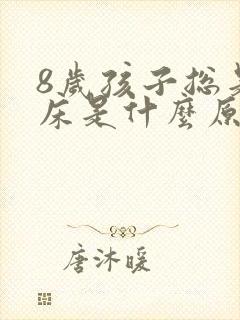 8歲孩子总
床是什麼原
唐沐暖